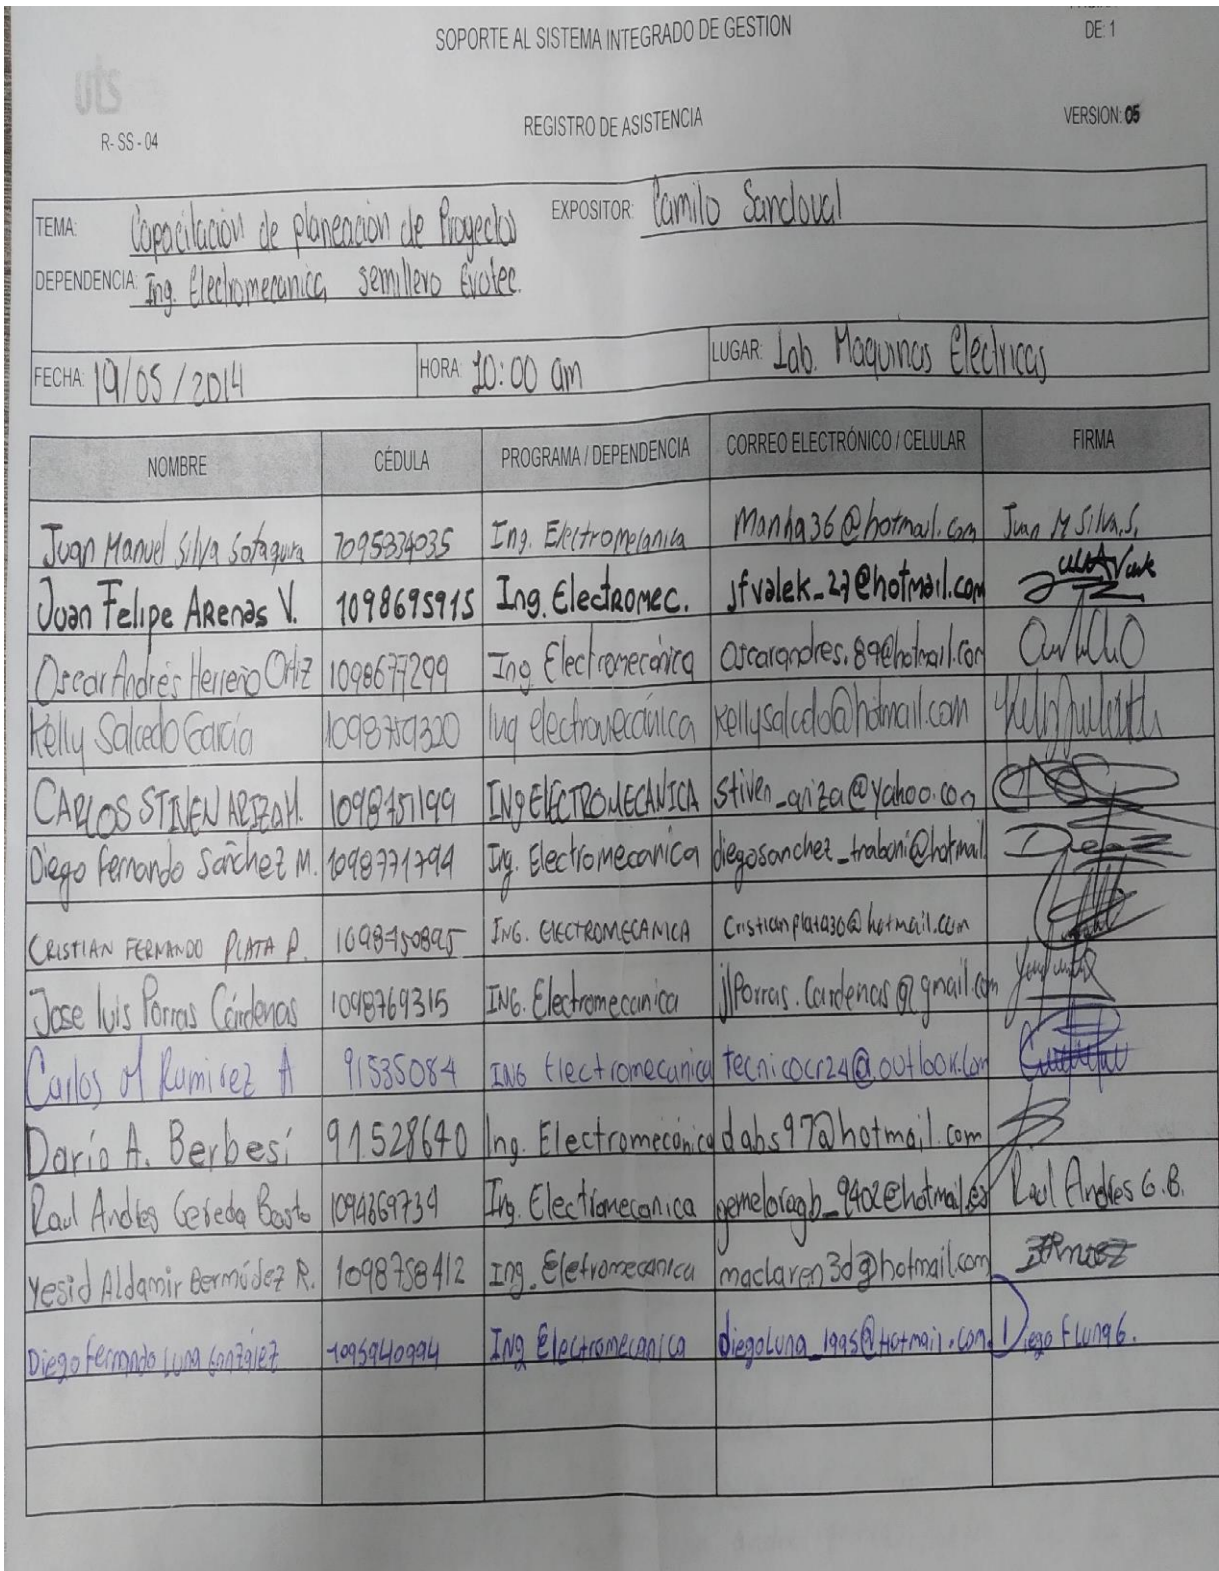 SOPORTE AL SISTEMA INTEGRADO DE GESTION
DE: 1
uts
R- SS - 04
REGISTRO DE ASISTENCIA
VERSION: 05
TEMA: Capacitación de planeación de Proyectos EXPOSITOR: Camilo Sandoval
DEPENDENCIA: Ing. Electromecanica semillero Evotec.
FECHA: 19/05/2014 HORA: 10:00 am LUGAR: Lab. Maquinas Electricas
NOMBRE CÉDULA PROGRAMA / DEPENDENCIA CORREO ELECTRÓNICO / CELULAR FIRMA
Juan Manuel Silva Sotaquira 1095834035 Ing. Electromecanica Manha36@hotmail.com Juan M Silva.S.
Juan Felipe Arenas V. 1098695915 Ing. Electromec. jfvalek_27@hotmail.com
Oscar Andrés Herreño Ortiz 1098677299 Ing. Electromecánica Oscarandres.89@hotmail.com
Kelly Salcedo García 1098759320 Ing electromecánica kellysalcdo@hotmail.com
CARLOS STIVEN ARIZA H. 1098751199 ING ELECTROMECANICA stiven_ariza@yahoo.com
Diego Fernando Sánchez M. 1098771794 Ing. Electromecanica diegosanchez_traboni@hotmail
CRISTIAN FERNANDO PLATA P. 1098750895 ING. ELECTROMECANICA Cristianplata30@hotmail.com
Jose luis Porras Cárdenas 1098769315 ING. Electromecanica jlPorras.Cardenas@gmail.com
Carlos M Ramirez A 91535084 ING Electromecanica tecnicocr24@outlook.com
Darío A. Berbesí 91.528640 Ing. Electromecánica dabs97@hotmail.com
Raul Andres Gereda Basto 1094269734 Ing. Electromecanica gemeloragb_9402@hotmail.es Raul Andres G.B.
Yesid Aldamir Bermúdez R. 1098758412 Ing. Eletromecanica maclaren3d@hotmail.com
Diego Fernando Luna González 1095940994 Ing Electromecanica diegoLuna_1995@Hotmail.com. Diego F Luna G.